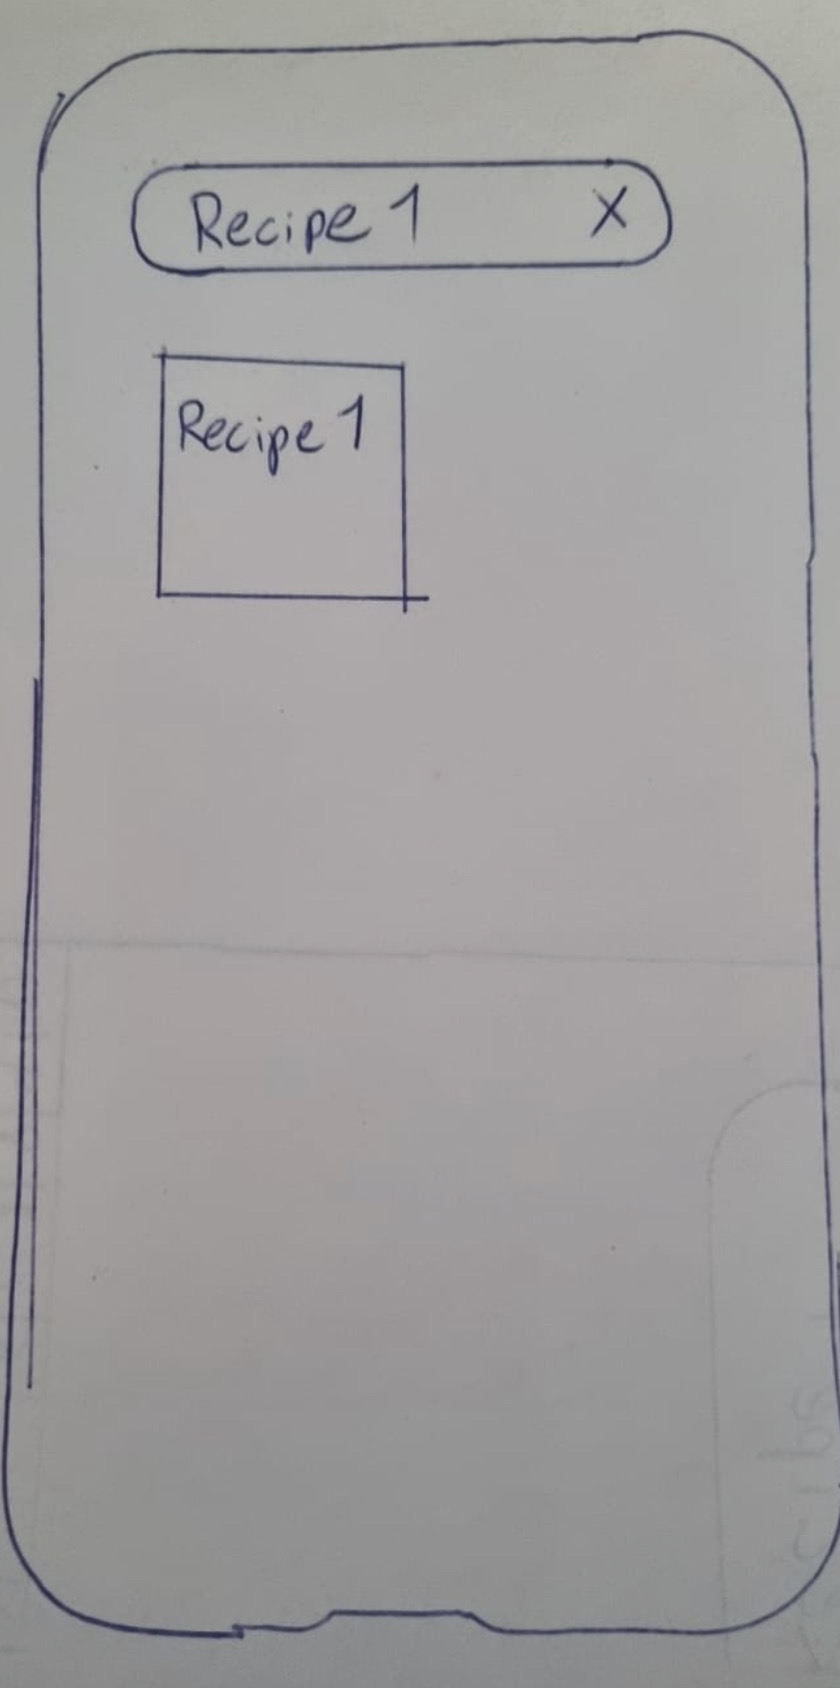 Recipe 1 X
Recipe 1